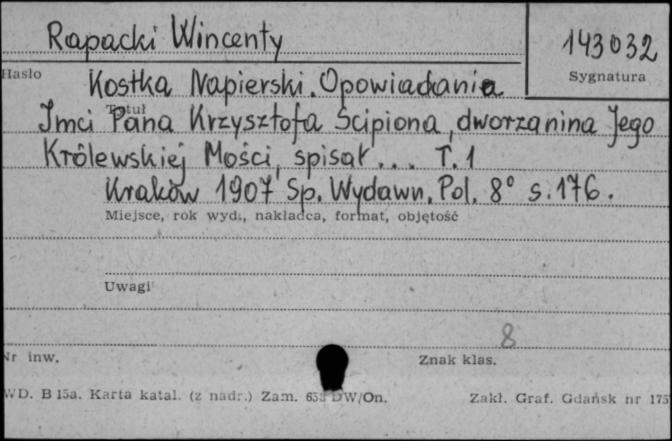 Rapacki Wincenty
143032
Hasło
Sygnatura
Kostka Napierski. Opowiadania
Tytuł
Imci Pana Krzysztofa Scipiona, dworzanina Jego
Królewskiej Mości, spisał... T.1
Kraków 1907 Sp. Wydawn. Pol. 8° s. 176.
Miejsce, rok wyd., nakładca, format, objętość
Uwagi
8
Nr inw.
Znak klas.
WD. B 15a. Karta katal. (z nadr.) Zam. DW/On.
Zakł. Graf. Gdańsk nr 175